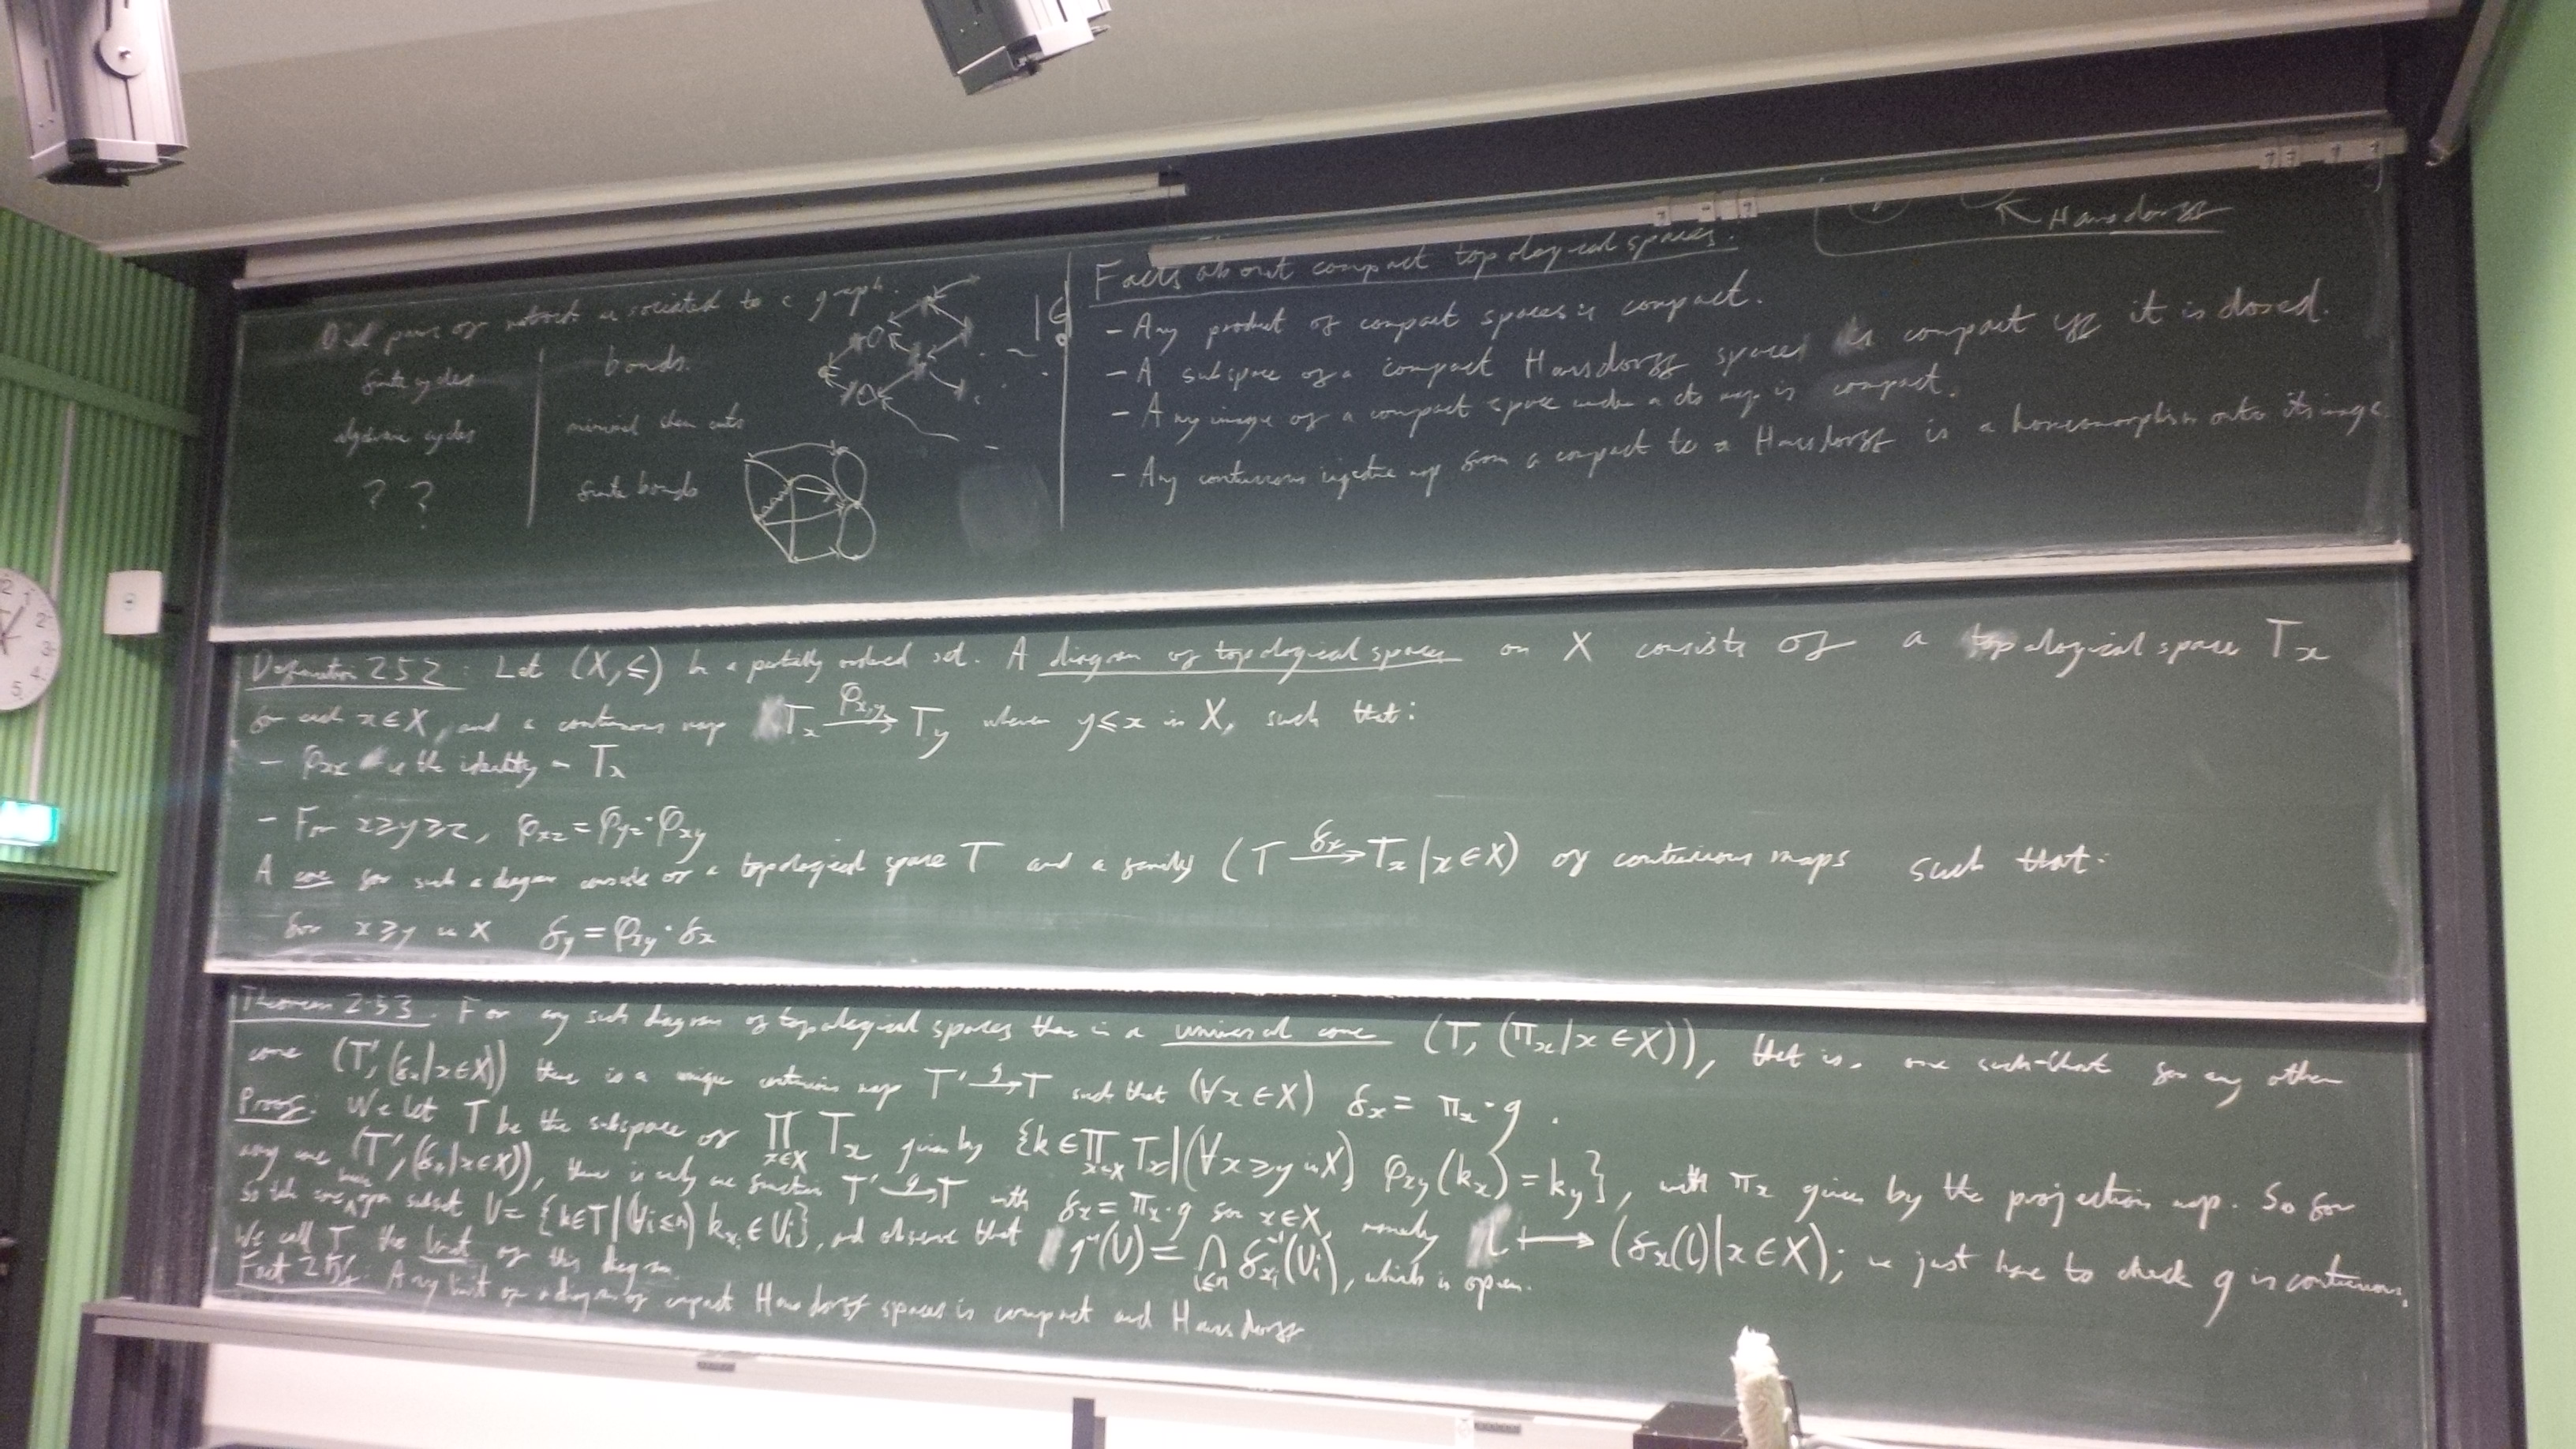 Dual pairs of matroids associated to a graph.
finite cycles
bonds.
algebraic cycles
minimal skew cuts
? ?
finite bonds
|G|
Hausdorff
Facts about compact topological spaces.
- Any product of compact spaces is compact.
- A subspace of a compact Hausdorff space is compact iff it is closed.
- Any image of a compact space under a cts map is compact.
- Any continuous injective map from a compact to a Hausdorff is a homeomorphism onto its image.
Definition 2.5.2: Let (X, ≤) be a partially ordered set. A diagram of topological spaces on X consists of a topological space Tₓ
for each x ∈ X, and a continuous map Tₓ —φ_{x,y}→ T_y whenever y ≤ x in X, such that:
- φ_{xx} is the identity on Tₓ
- For x ≥ y ≥ z, φ_{xz} = φ_{yz} · φ_{xy}
A cone for such a diagram consists of a topological space T and a family (T —fₓ→ Tₓ | x ∈ X) of continuous maps such that:
for x ≥ y in X f_y = φ_{xy} · fₓ
Theorem 2.5.3. For any such diagram of topological spaces there is a universal cone (T, (πₓ | x ∈ X)), that is, one such that for any other
cone (T', (fₓ | x ∈ X)) there is a unique continuous map T' —g→ T such that (∀x ∈ X) fₓ = πₓ · g.
Proof: We let T be the subspace of ∏_{x∈X} Tₓ given by {k ∈ ∏_{x∈X} Tₓ | (∀x ≥ y in X) φ_{xy}(kₓ) = k_y}, with πₓ given by the projection map. So for
any cone (T', (fₓ | x ∈ X)), there is only one function T' —g→ T with fₓ = πₓ · g for x ∈ X, namely l ⟼ (fₓ(l) | x ∈ X); we just have to check g is continuous.
So take some basic open subset U = {k ∈ T | (∀i ≤ n) k_{xᵢ} ∈ Uᵢ}, and observe that g⁻¹(U) = ⋂_{i≤n} f_{xᵢ}⁻¹(Uᵢ), which is open.
We call T the limit of this diagram.
Fact 2.5.4: Any limit of a diagram of compact Hausdorff spaces is compact and Hausdorff